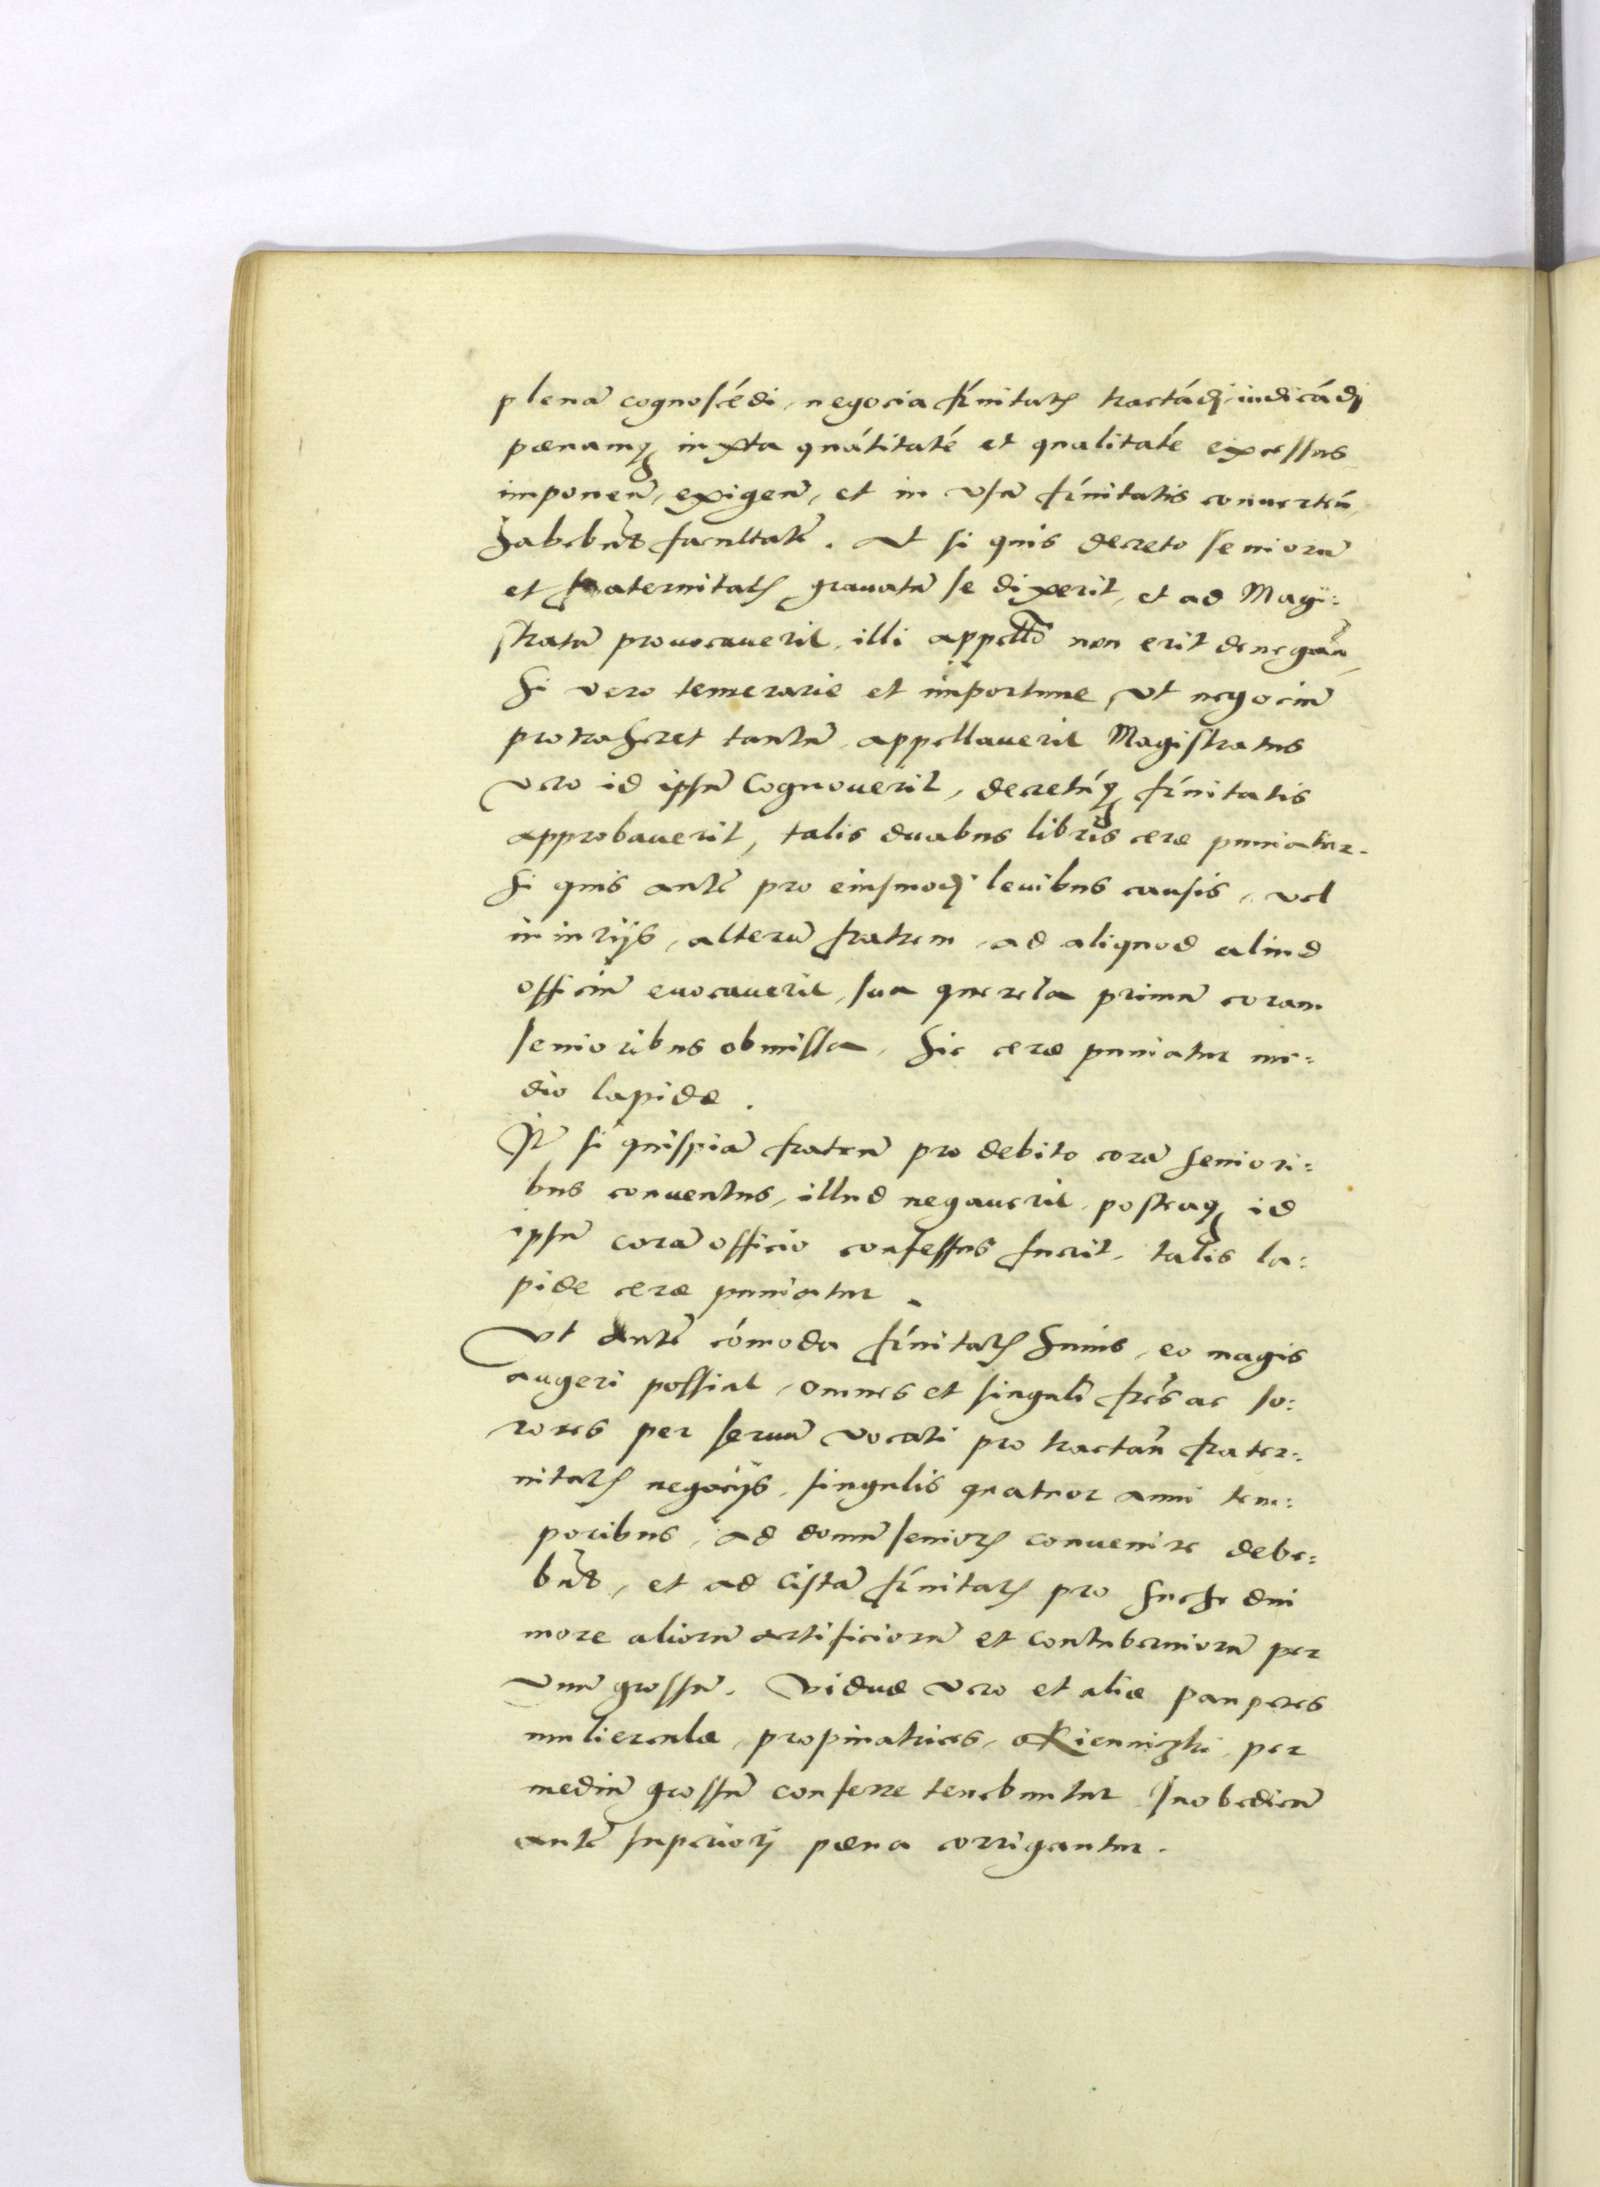 plenā cognoscēdi, negocia frn̄itatis tractādi, iudicādi
pœnamq́ȝ iuxta quātitatē et qualitatē excessus
imponen̄, exigen̄, et in vsū frn̄itatis conuerten̄
habebūt facultatē. At si quis decreto seniorū
et fraternitatis grauatū se dixerit, et ad Magi:
stratū prouocauerit, illi appellō non erit denegan̄,
si vero temerarie et importune vt negociū
protraheret tantū, appellauerit Magistratus
vero id ipsū Cognouerit, decretūqȝ frn̄itatis
approbauerit, talis duabus libris ceræ puniatur.
Si quis autē pro eiusmodi leuibus causis, vel
iniurijs, alterū fratrem, ad aliquod aliud
officiū euocauerit, sua querela primū coram
senioribus obmissa, hic ceræ puniatur me:
dio lapide.
Itē si quispiā fratrū pro debito corā seniori:
bus conuentus, illud negauerit, posteaqȝ id
ipsū corā officio confessus fuerit, talis la:
pide ceræ puniatur.
Vt autē cōmoda frn̄itatis huius, eo magis
augeri possint, omnes et singuli frēs ac so:
rores per seruū vocati pro tractan̄ frater:
nitatis negocijs, singulis quatuor anni tem:
poribus, ad domū senioris conuenire debe:
būt, et ad Cistā frn̄itatis pro suche dni
more aliorū artificiorū et contuberniorū per
vnū grossū. Viduæ vero et aliæ pauperes
mulierculæ, propinatrices, per
mediū grossū conferre tenebuntur. Inobedien̄
autē superiori pœna corrigantur.